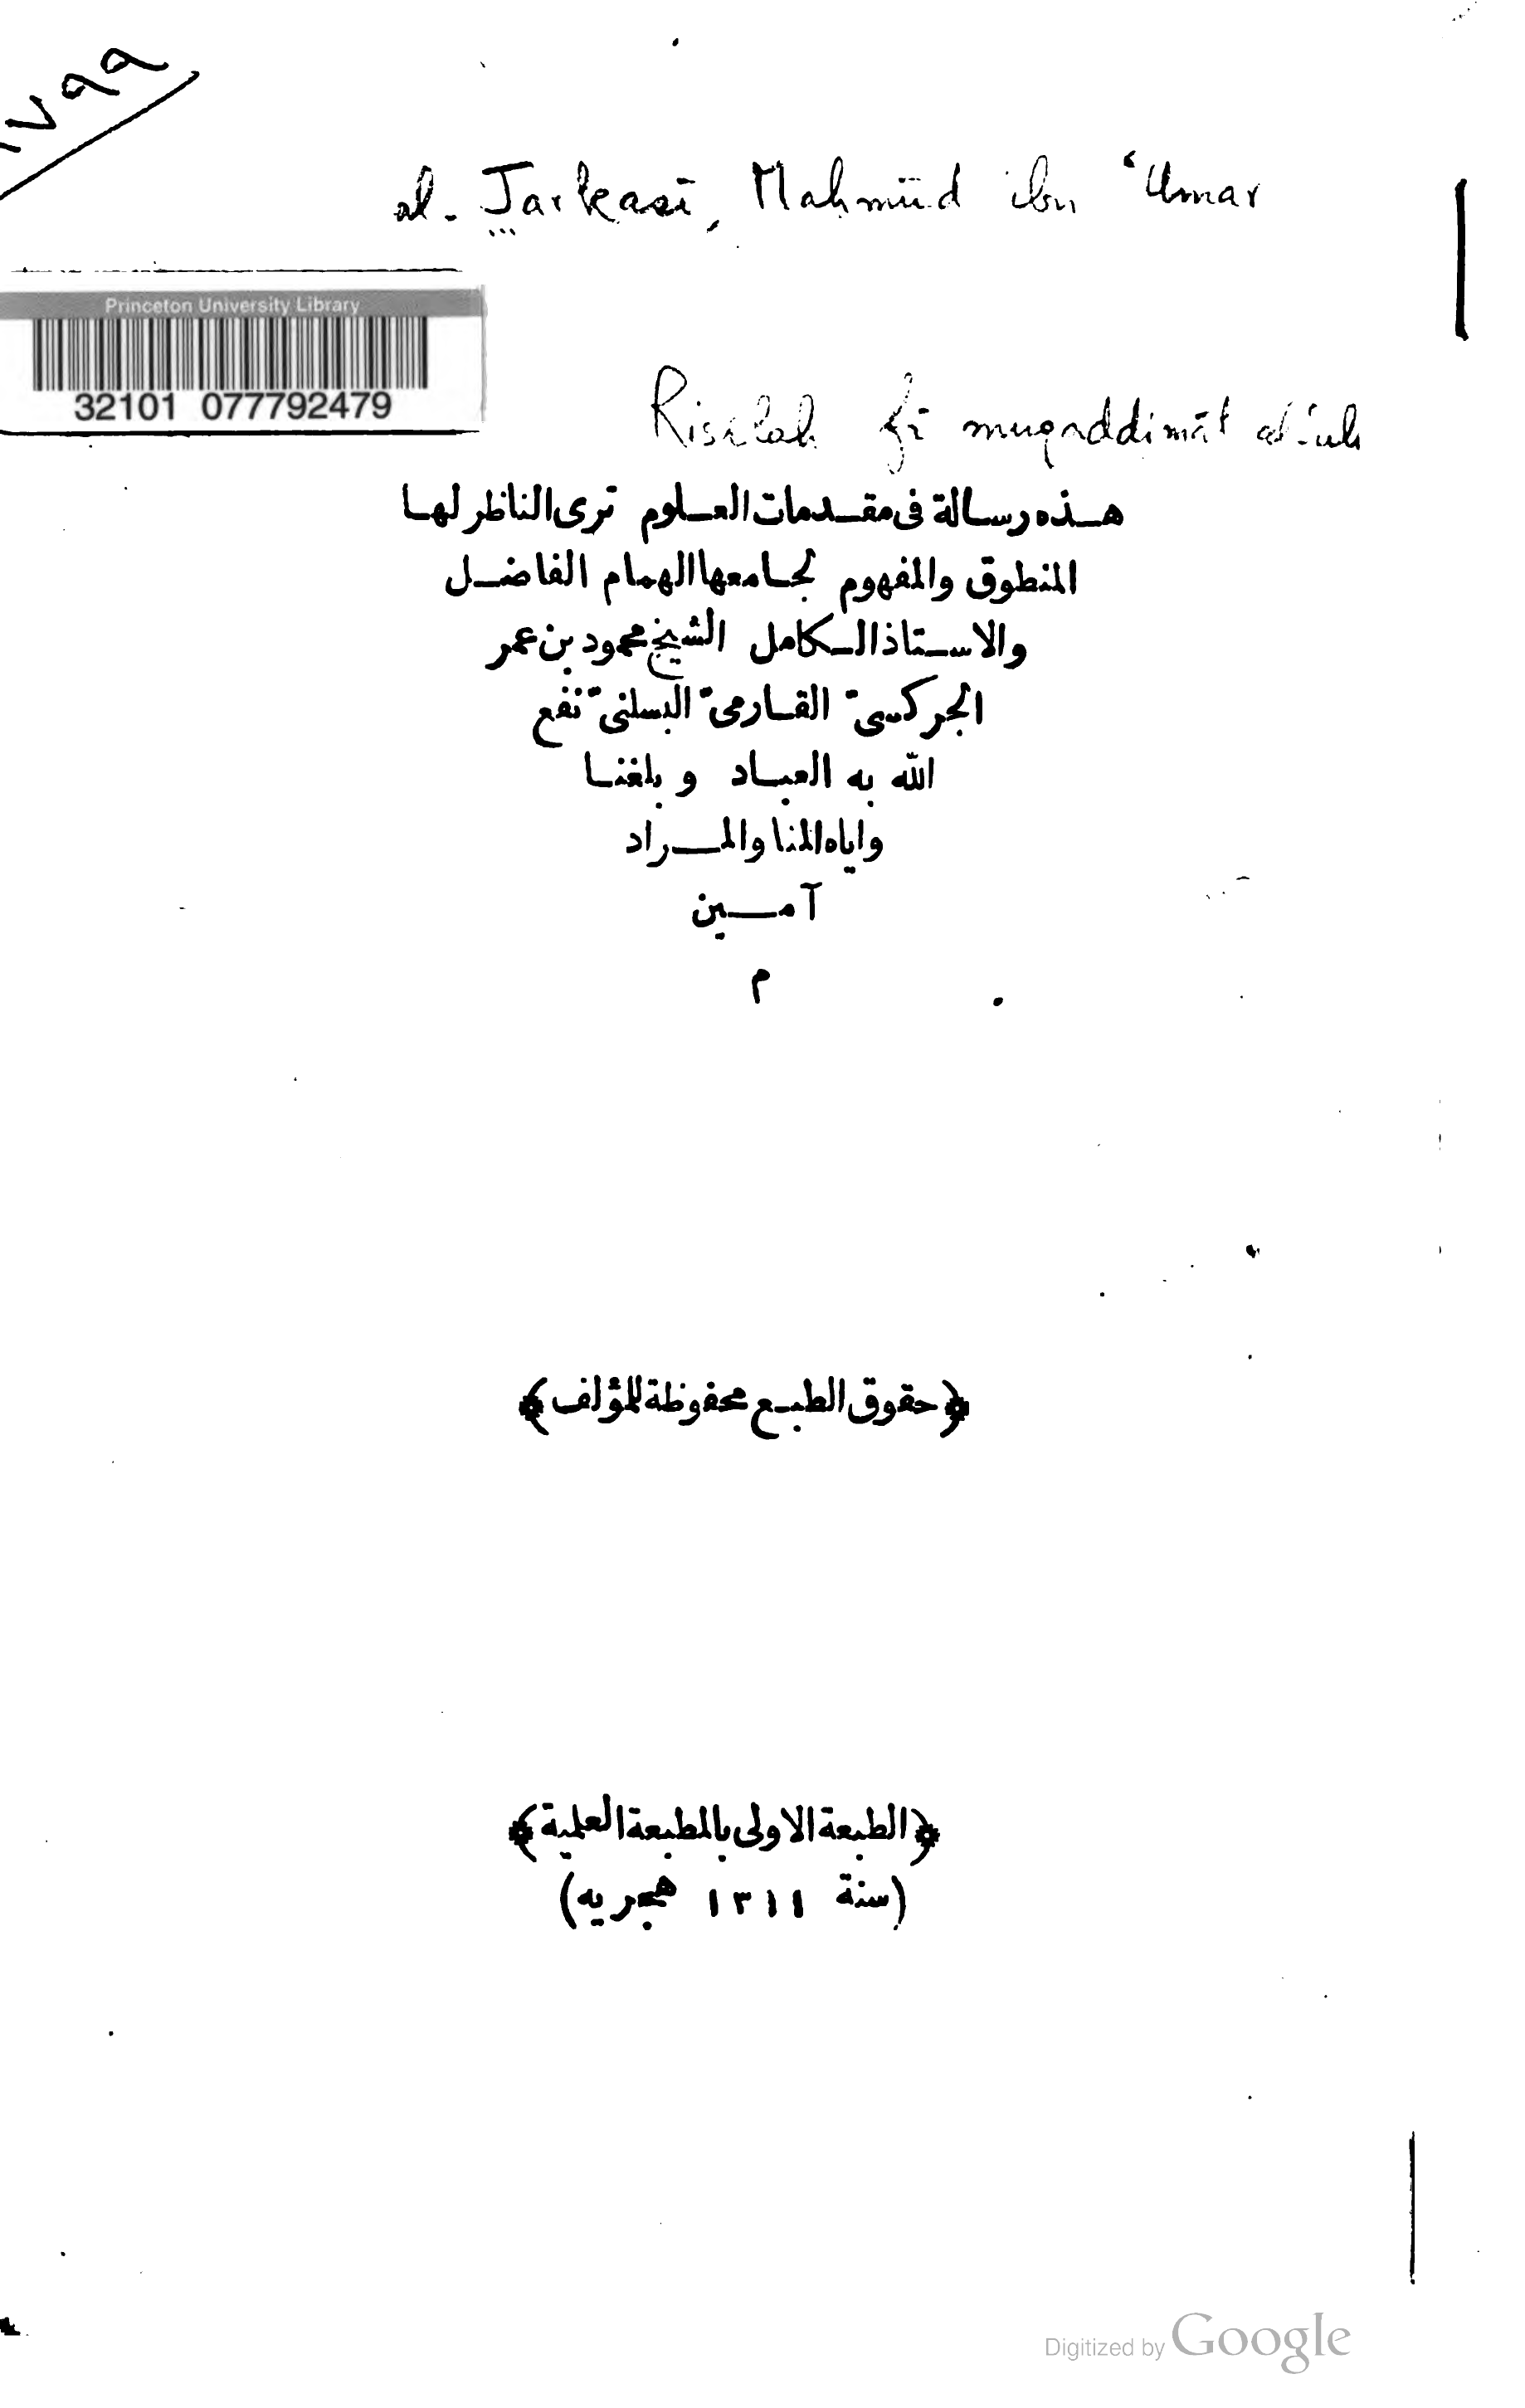 ١٧٩٩
al-Jarkasī, Mahmūd ibn ʿUmar
Princeton University Library
32101 077792479
Risālah fī muqaddimāt al-ʿul
هذه رسالة فى مقدمات العلوم ترى الناظر لها
المنطوق والمفهوم لجامعها الهمام الفاضل
والاستاذ الكامل الشيخ محمود بن عمر
الجركسىّ القارمىّ البسلنىّ نفع
الله به العباد وبلغنا
واياه المنا والمراد
آمين
م
﴿حقوق الطبع محفوظة للمؤلف﴾
﴿الطبعة الاولى بالمطبعة العلمية﴾
(سنة ١٣١١ هجريه)
Digitized by Google